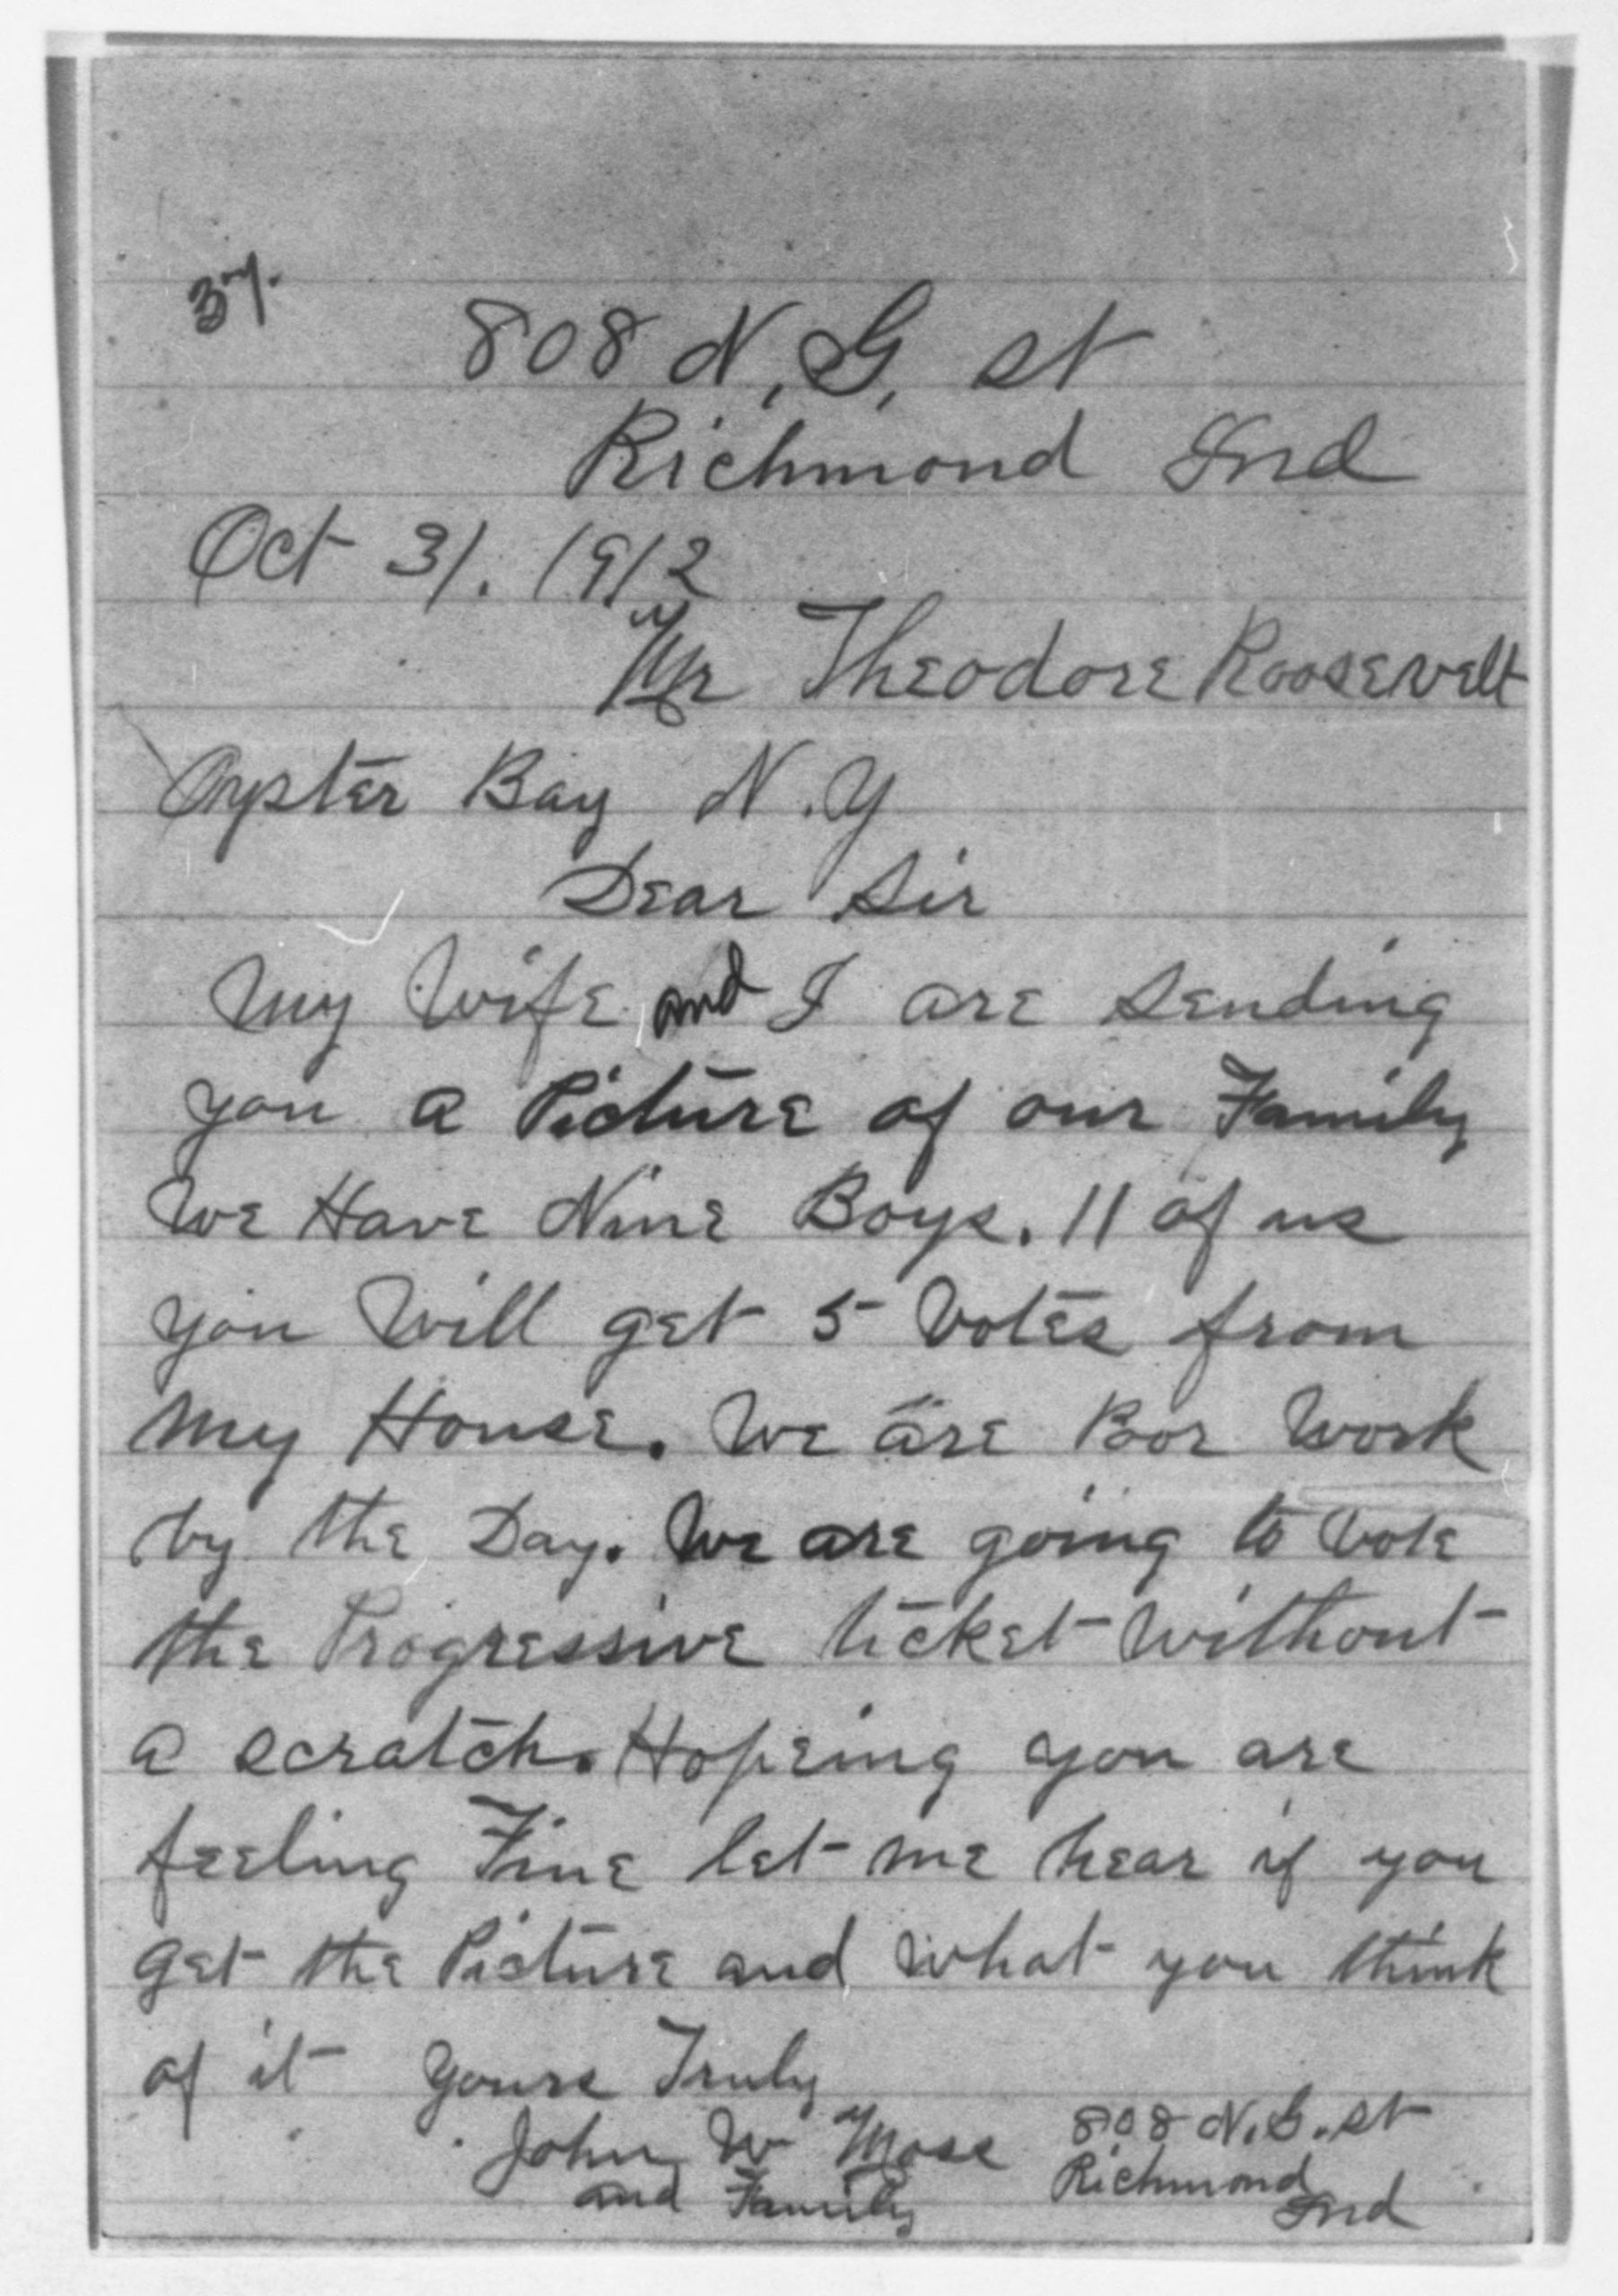 37.
808 N, G, st
Richmond Ind
Oct 31. 1912
Mr Theodore Roosevelt
Oyster Bay N.Y
Dear Sir
My Wife and I are sending
you a Picture of our Family
We Have Nine Boys. 11 of us
you Will get 5 Votes from
My House. We are Poor Work
by the Day. We are going to Vote
the Progressive ticket Without
a scratch. Hopeing you are
feeling Fine let me hear if you
get the Picture and What you think
of it Yours Truly
John W Moss
and Family
808 N. G. st
Richmond
Ind